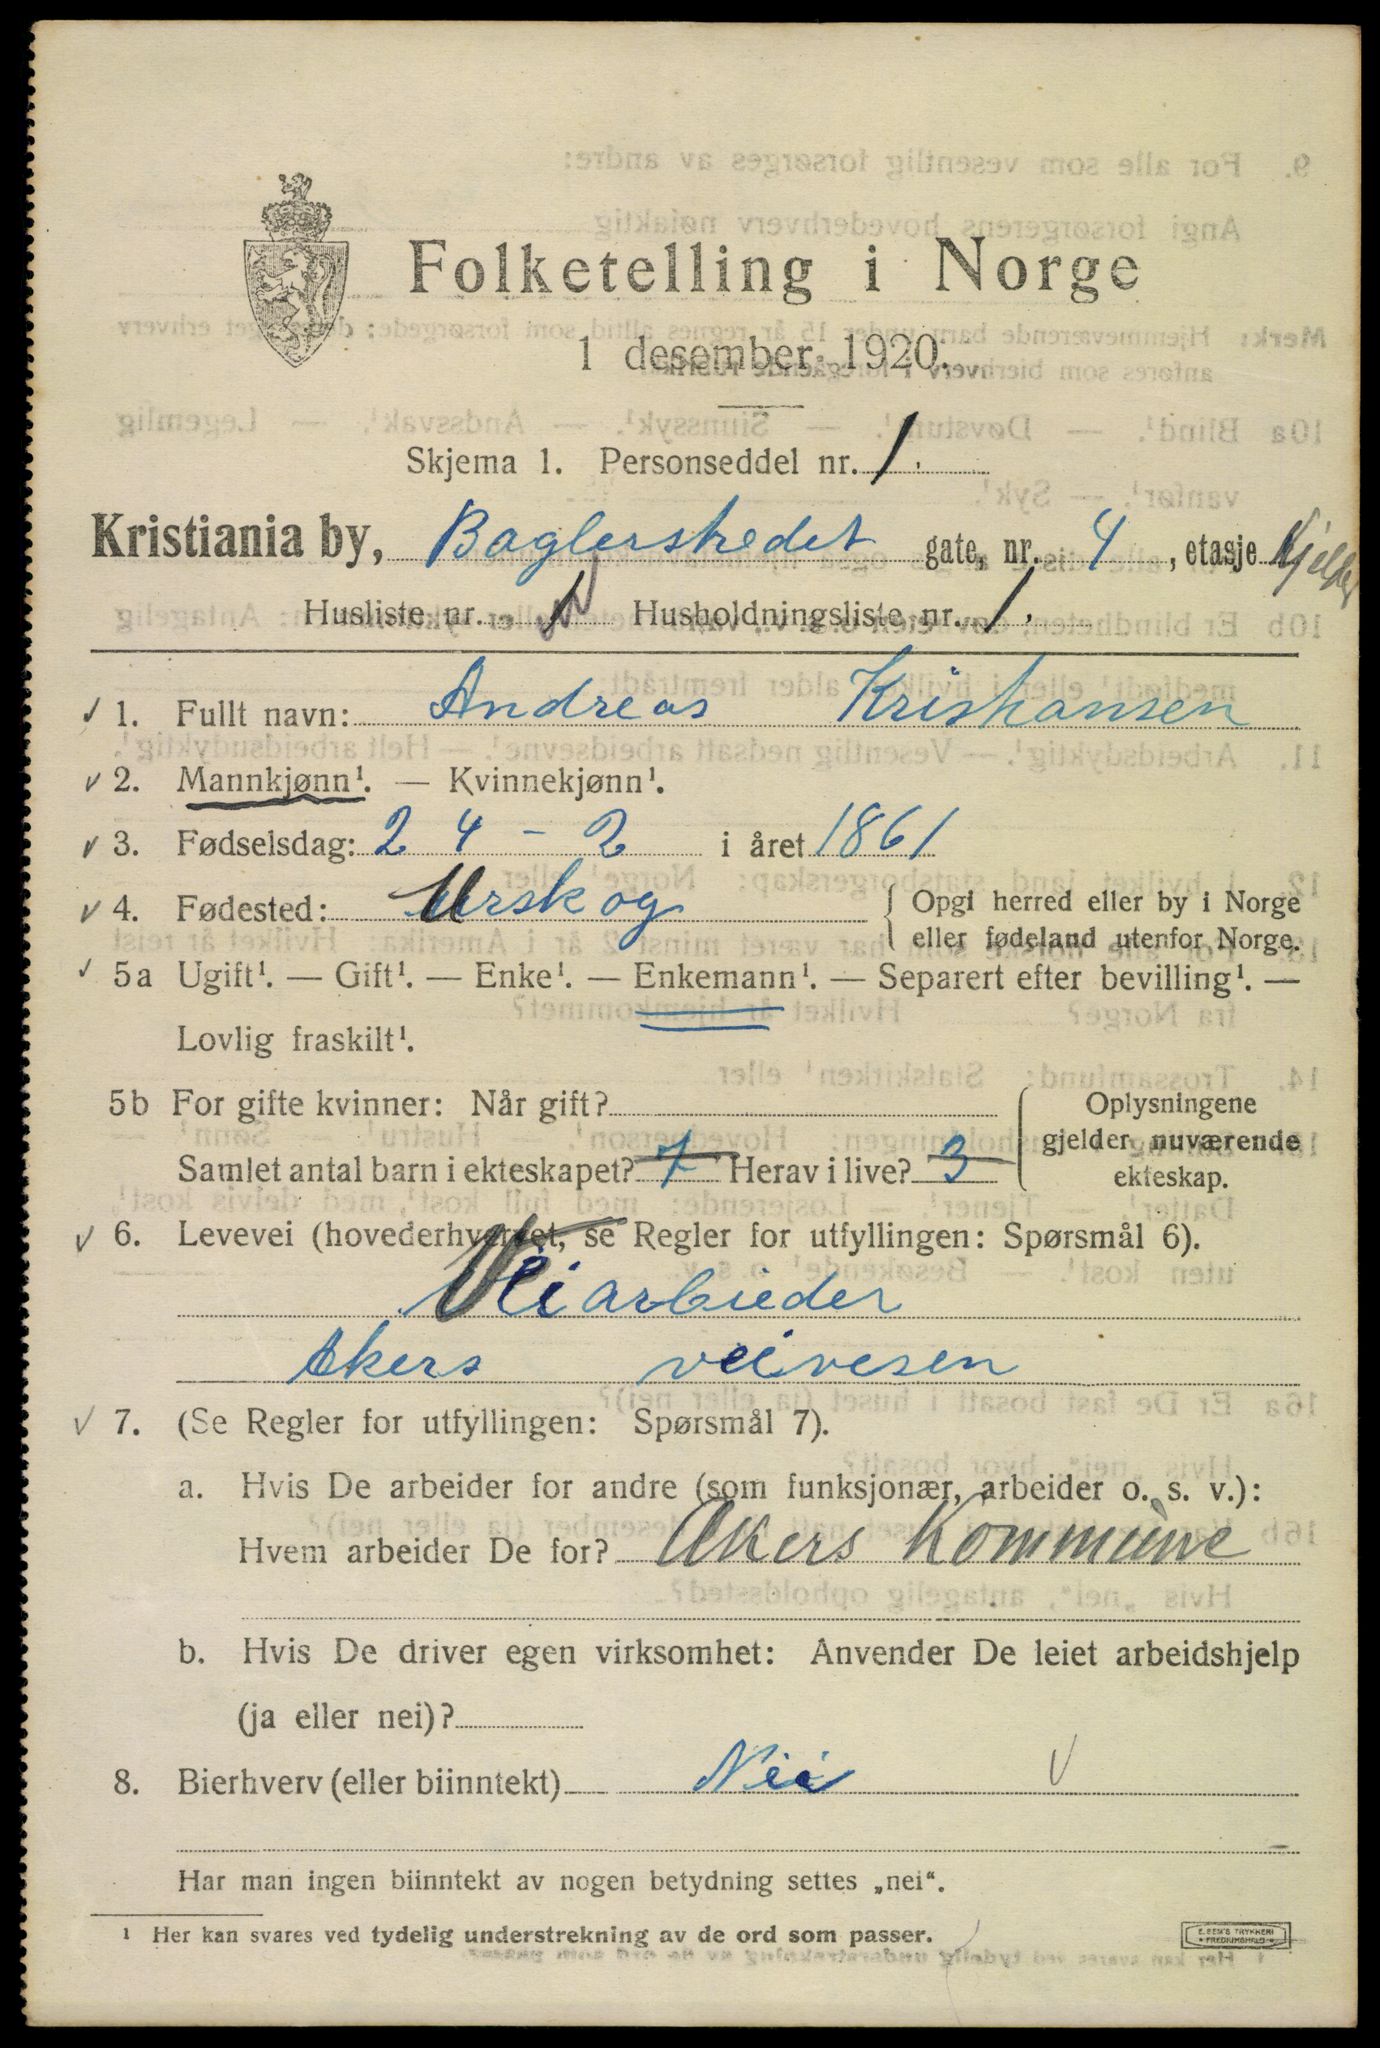 Folketelling i Norge
1 desember 1920.
Skjema 1. Personseddel nr. 1.
Kristiania by, Baglerstredet gate, nr. 4, etasje Kjelder
Husliste nr. Husholdningsliste nr. 1.
✓ 1. Fullt navn: Andreas Kristiansen
✓ 2. Mannkjønn¹. — Kvinnekjønn¹.
✓ 3. Fødselsdag: 24 - 2 i året 1861
✓ 4. Fødested: Urskog { Opgi herred eller by i Norge
eller fødeland utenfor Norge.
✓ 5a Ugift¹. — Gift¹. — Enke¹. — Enkemann¹. — Separert efter bevilling¹. —
Lovlig fraskilt¹.
5b For gifte kvinner: Når gift? Oplysningene
gjelder nuværende
Samlet antal barn i ekteskapet? 7 Herav i live? 3 ekteskap.
✓ 6. Levevei (hovederhvervet, se Regler for utfyllingen: Spørsmål 6).
Veiarbieder
Akers veivesen
✓ 7. (Se Regler for utfyllingen: Spørsmål 7).
a. Hvis De arbeider for andre (som funksjonær, arbeider o. s. v.):
Hvem arbeider De for? Akers Kommune
b. Hvis De driver egen virksomhet: Anvender De leiet arbeidshjelp
(ja eller nei)?
8. Bierhverv (eller biinntekt) Nei ✓
Har man ingen biinntekt av nogen betydning settes „nei“.
¹ Her kan svares ved tydelig understrekning av de ord som passer.
E. SEM'S TRYKKERI
FREDRIKSHALD